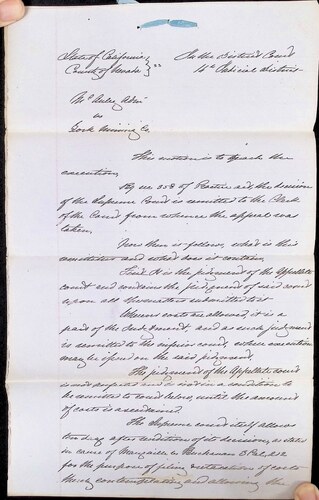 State of California }
County of Nevada } ss
In the District Court
14th Judicial District
McAuley Adm
vs
York Mining Co
This motion is to quash the
execution,
By sec 358 of Practice act, the decision
of the Supreme Court is remitted to the Clerk
of the Court from whence the appeal was
taken,
Now then is follows, what is this
remittitur and what does it contain,
First. It is the judgment of the Appellate
court and contains the judgment of said court
upon all questions submitted to it
Where costs are allowed, it is a
part of the Judgment and as such judgment
is remitted to the inferior court, where execution
may be issued on the said judgment.
The judgment of the Appellate court
is not and is not in a condition to
be remitted to court below, until the amount
of costs is ascertained.
The Supreme court itself allows
ten days after rendition of its decision, as stated
in case of Marysville vs Buchanan 3 Cal 212
for the purpose of filing of costs
thereby contemplating and allowing the